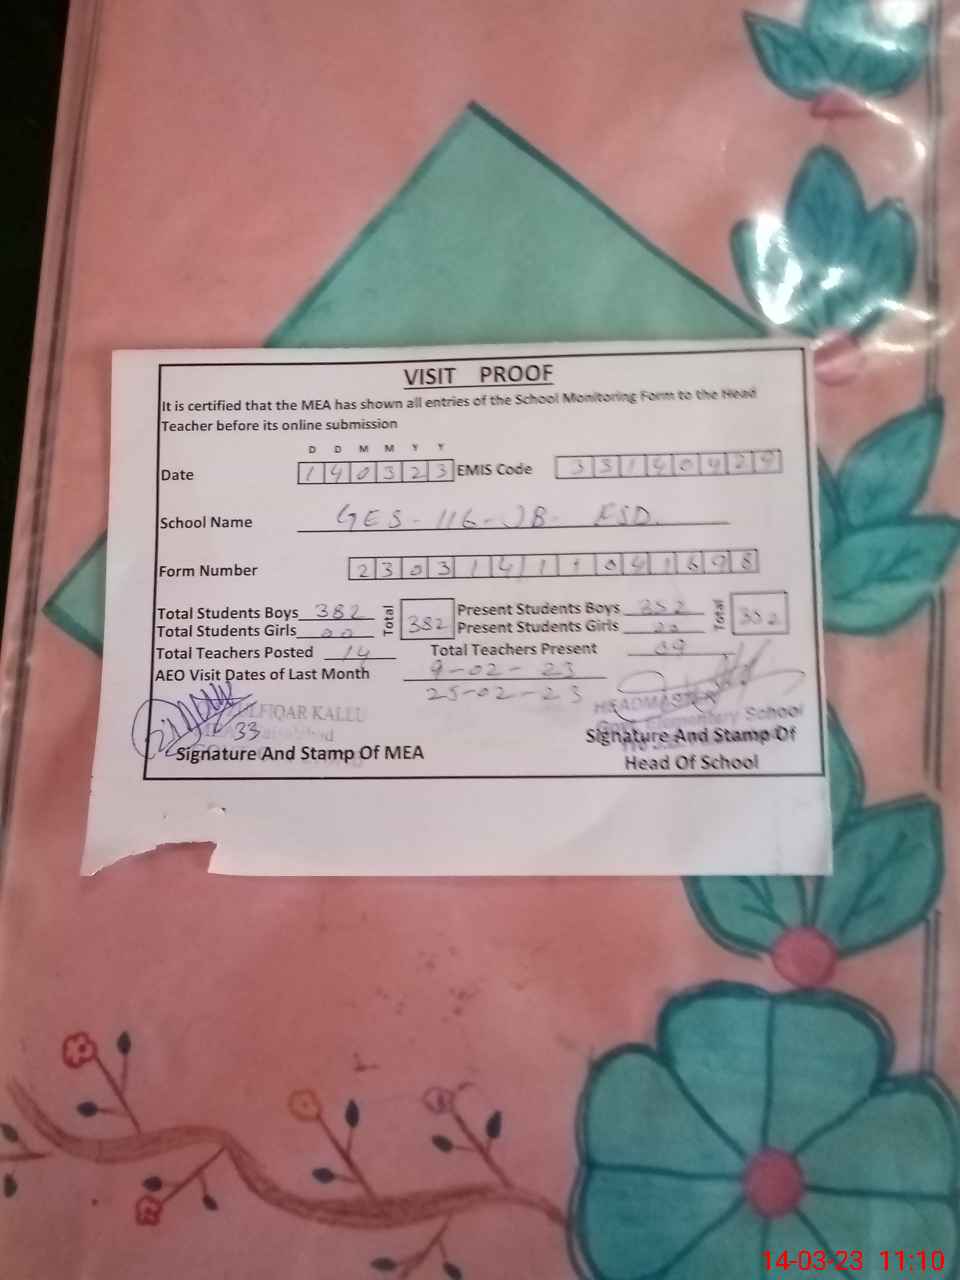 VISIT PROOF
It is certified that the MEA has shown all entries of the School Monitoring Form to the Head
Teacher before its online submission
D D M M Y Y
Date 140323 EMIS Code 33140429
School Name GES-116-JB- FSD.
Form Number 23031411041698
Total Students Boys 382 Total 382 Present Students Boys 352 Total 352
Total Students Girls 00 Present Students Girls
Total Teachers Posted 14 Total Teachers Present 09
AEO Visit Dates of Last Month 9-02-23
25-02-23
ZULFIQAR KALLU HEADMASTER
33 Elementary School
Signature And Stamp Of MEA Signature And Stamp Of
Head Of School
14-03-23 11:10